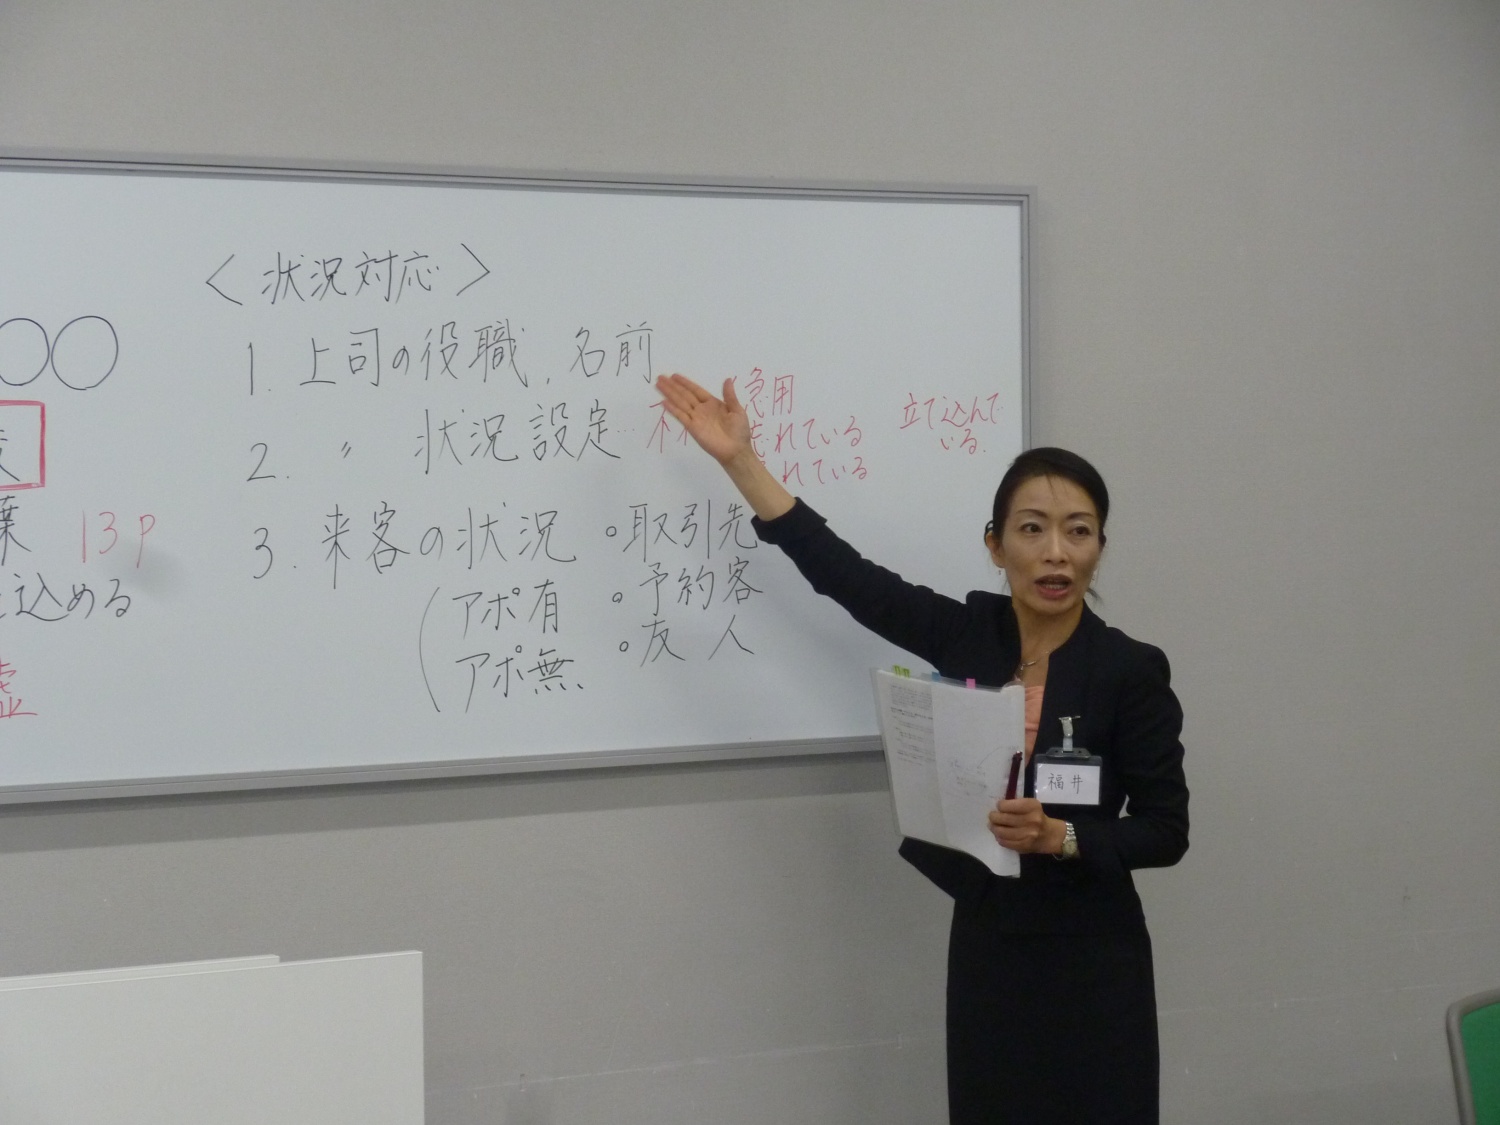 〈状況対応〉
1. 上司の役職、名前
2. 〃 状況設定…
急用
れている
れている
立て込んで
いる.
3. 来客の状況
アポ有
アポ無
○取引先
○予約客
○友人
○○
葉 13P
込める
虚
福井